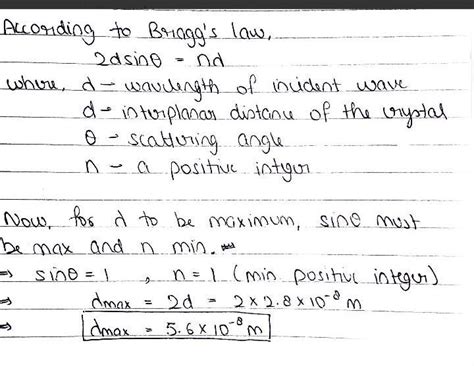 According to Bragg's law,
2dsinθ = nλ
where, λ - wavelength of incident wave
d - interplanar distance of the crystal
θ - scattering angle
n - a positive integer
Now, for λ to be maximum, sinθ must
be max and n min.
⇒ sinθ = 1 , n = 1 (min positive integer)
⇒ λmax = 2d = 2 × 2.8 × 10⁻⁸ m
⇒ λmax = 5.6 × 10⁻⁸ m